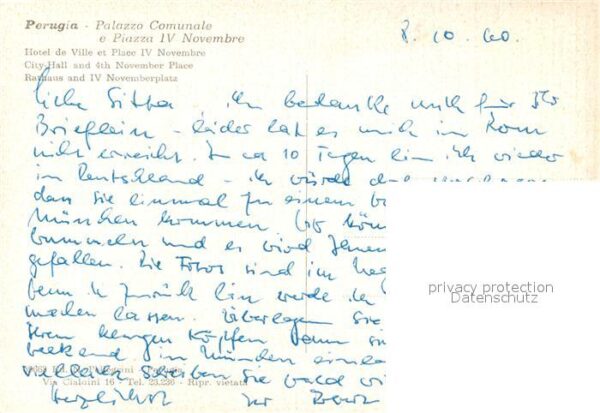 Perugia - Palazzo Comunale
e Piazza IV Novembre
Hotel de Ville et Place IV Novembre
City-Hall and 4th November Place
Rathaus and IV Novemberplatz
8. 10. 60.
Liebe Gitta - ich bedanke mich für Ihr
Brieflein - leider hat es mich in Rom
nicht erreicht. In ca 10 Tagen bin ich wieder
in Deutschland - ich würde
dass Sie einmal zu einem
München kommen.
bummeln und es wird Ihnen
gefallen. Die Fotos sind im
wenn ich zurück bin werde ich
machen lassen. Überlegen Sie
Ihrem klugen Köpfchen
in München
vielleicht schreiben Sie bald
Herzlichst Ihr
privacy protection
Datenschutz
Via Cialdini 16 - Tel. 23.236 - Ripr. vietata